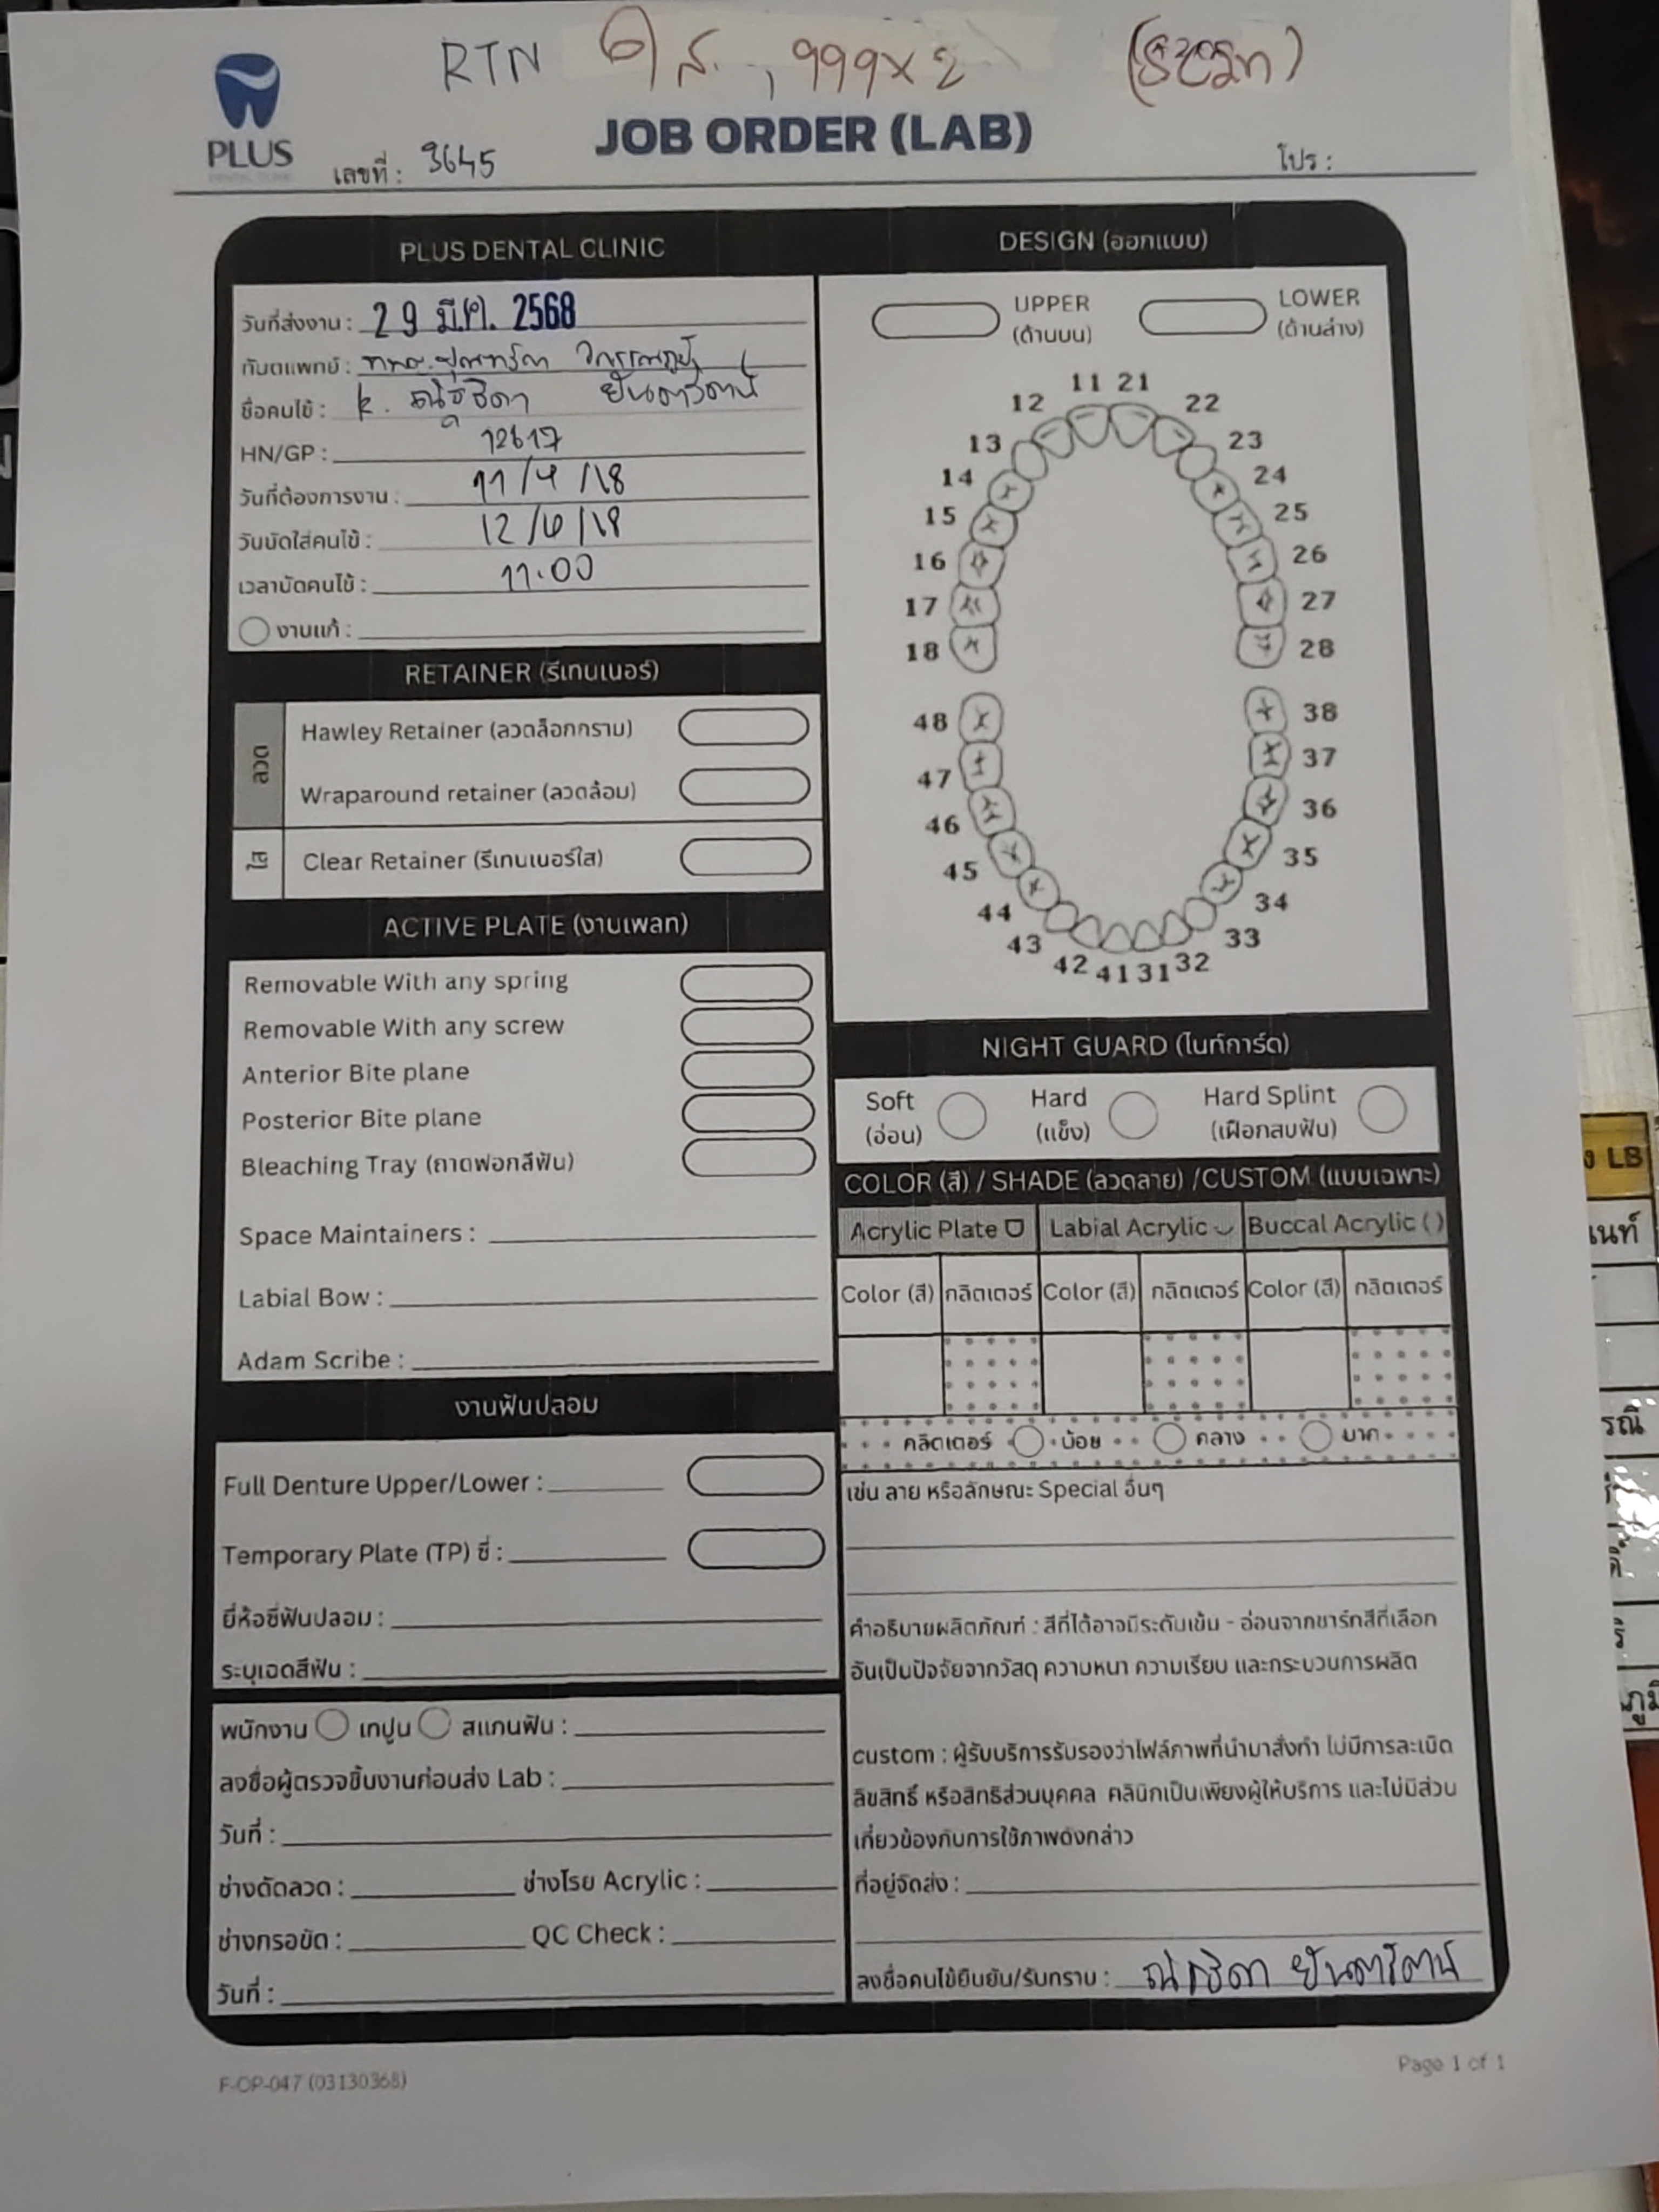 RTN ส. , 999 x 2
PLUS
DENTAL CLINIC
JOB ORDER (LAB)
เลขที่ : 3645
โปร :
PLUS DENTAL CLINIC
วันที่ส่งงาน : 29 มี.ค. 2568
ทันตแพทย์ :
ชื่อคนไข้ : k.
HN/GP : 12617
วันที่ต้องการงาน : 11/4/68
วันนัดใส่คนไข้ : 12/4/68
เวลานัดคนไข้ : 11.00
งานแก้ :
RETAINER (รีเทนเนอร์)
ลวด
Hawley Retainer (ลวดล็อกกราม)
Wraparound retainer (ลวดล้อม)
ใส
Clear Retainer (รีเทนเนอร์ใส)
ACTIVE PLATE (งานเพลท)
Removable With any spring
Removable With any screw
Anterior Bite plane
Posterior Bite plane
Bleaching Tray (ถาดฟอกสีฟัน)
Space Maintainers :
Labial Bow :
Adam Scribe :
งานฟันปลอม
Full Denture Upper/Lower :
Temporary Plate (TP) ซี่ :
ยี่ห้อซี่ฟันปลอม :
ระบุเฉดสีฟัน :
พนักงาน เทปูน สแกนฟัน :
ลงชื่อผู้ตรวจชิ้นงานก่อนส่ง Lab :
วันที่ :
ช่างดัดลวด : ช่างโรย Acrylic :
ช่างกรอขัด : QC Check :
วันที่ :
DESIGN (ออกแบบ)
UPPER
(ด้านบน)
LOWER
(ด้านล่าง)
11 21
12 22
13 23
14 24
15 25
16 26
17 27
18 28
48 38
47 37
46 36
45 35
44 34
43 33
42 41 31 32
NIGHT GUARD (ไนท์การ์ด)
Soft
(อ่อน)
Hard
(แข็ง)
Hard Splint
(เฝือกสบฟัน)
COLOR (สี) / SHADE (ลวดลาย) /CUSTOM (แบบเฉพาะ)
Acrylic Plate Labial Acrylic Buccal Acrylic ( )
Color (สี) กลิตเตอร์ Color (สี) กลิตเตอร์ Color (สี) กลิตเตอร์
กลิตเตอร์ น้อย กลาง มาก
เช่น ลาย หรือลักษณะ Special อื่นๆ
คำอธิบายผลิตภัณฑ์ : สีที่ได้อาจมีระดับเข้ม - อ่อนจากชาร์ทสีที่เลือก
อันเป็นปัจจัยจากวัสดุ ความหนา ความเรียบ และกระบวนการผลิต
custom : ผู้รับบริการรับรองว่าไฟล์ภาพที่นำมาสั่งทำ ไม่มีการละเมิด
ลิขสิทธิ์ หรือสิทธิส่วนบุคคล คลินิกเป็นเพียงผู้ให้บริการ และไม่มีส่วน
เกี่ยวข้องกับการใช้ภาพดังกล่าว
ที่อยู่จัดส่ง :
ลงชื่อคนไข้ยืนยัน/รับทราบ :
F-OP-047 (03130368)
Page 1 of 1
LB